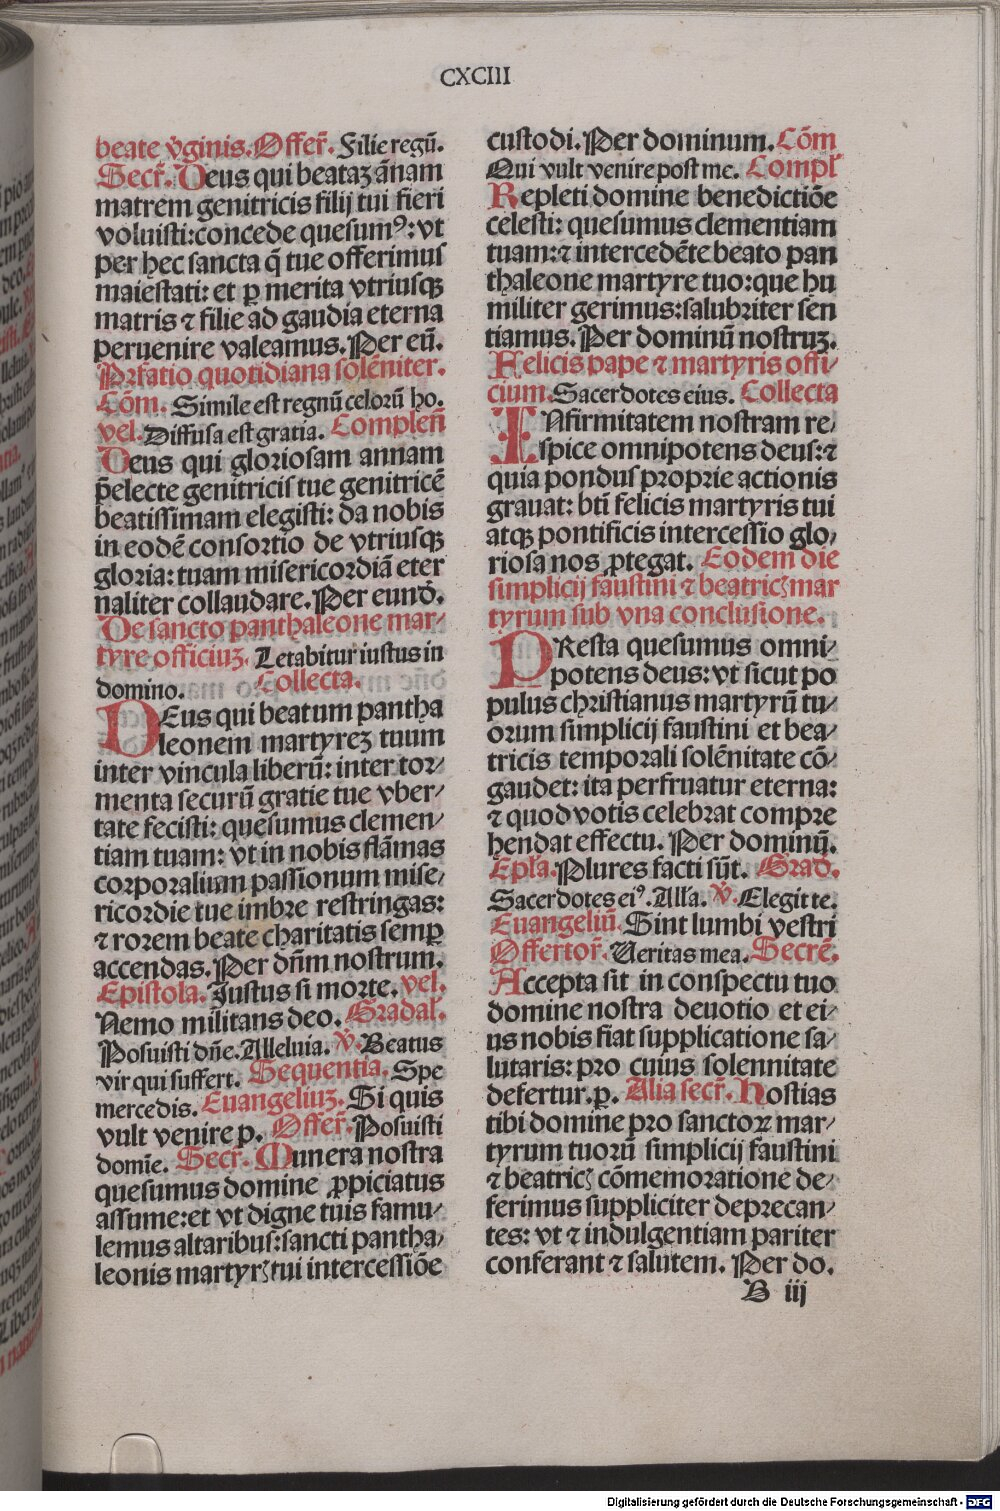 CXCIII
beate v̄ginis. Offer̄. Filie regū.
Secr̄. Deus qui beataʒ ānam
matrem genitricis filij tui fieri
voluisti: concede quesumꝰ: vt
per hec sancta q̄ tue offerimus
maiestati: et ꝑ merita vtriusqʒ
matris ⁊ filie ad gaudia eterna
peruenire valeamus. Per eū.
Prefatio quotidiana solēniter.
Cōm. Simile est regnū celorū ho.
vel. Diffusa est gratia. Complen̄
Deus qui gloriosam annam
p̄electe genitricis tue genitricē
beatissimam elegisti: da nobis
in eodē consortio de vtriusqʒ
gloria: tuam misericordiā eter
naliter collaudare. Per eund̄.
De sancto panthaleone mar⸗
tyre officiuʒ. Letabitur iustus in
domino. Collecta.
DEus qui beatum pantha
leonem martyreʒ tuum
inter vincula liberū: inter tor⸗
menta securū gratie tue vber⸗
tate fecisti: quesumus clemen⸗
tiam tuam: vt in nobis flāmas
corporalium passionum mise⸗
ricordie tue imbre restringas:
⁊ rorem beate charitatis semꝑ
accendas. Per dn̄m nostrum.
Epistola. Justus si morte. vel.
Nemo militans deo. Gradal̄.
Posuisti dn̄e. Alleluia. V̄. Beatus
vir qui suffert. Sequentia. Spe
mercedis. Euangeliuʒ. Si quis
vult venire p. Offer̄. Posuisti
domīe. Secr̄. Munera nostra
quesumus domine ꝓpiciatus
assume: et vt digne tuis famu⸗
lemus altaribus: sancti pantha⸗
leonis martyrꝭ tui intercessiōe
custodi. Per dominum. Cōm
Qui vult venire post me. Compl̄
Repleti domine benedictiōe
celesti: quesumus clementiam
tuam: ⁊ intercedēte beato pan
thaleone martyre tuo: que hu
militer gerimus: salubriter sen
tiamus. Per dominū nostruʒ.
Felicis pape ⁊ martyris offi⸗
cium. Sacerdotes eius. Collecta
INfirmitatem nostram re⸗
spice omnipotens deus: ⁊
quia pondus proprie actionis
grauat: bt̄i felicis martyris tui
atqʒ pontificis intercessio glo⸗
riosa nos ꝓtegat. Eodem die
simplicij faustini ⁊ beatricꝭ mar
tyrum sub vna conclusione.
PResta quesumus omni⸗
potens deus: vt sicut po
pulus christianus martyrū tu⸗
orum simplicij faustini et bea⸗
tricis temporali solēnitate cō⸗
gaudet: ita perfruatur eterna:
⁊ quod votis celebrat compre
hendat effectu. Per dominū.
Ep̄la. Plures facti sūt. Grad̄.
Sacerdotes eiꝰ. All̄a. V̄. Elegit te.
Euangeliū. Sint lumbi vestri
Offertor̄. Ueritas mea. Secrē.
Accepta sit in conspectu tuo
domine nostra deuotio et ei⸗
us nobis fiat supplicatione sa⸗
lutaris: pro cuius solennitate
defertur. p. Alia secr̄. Hostias
tibi domine pro sanctoꝝ mar⸗
tyrum tuorū simplicij faustini
⁊ beatricꝭ cōmemoratione de⸗
ferimus suppliciter deprecan⸗
tes: vt ⁊ indulgentiam pariter
conferant ⁊ salutem. Per do.
B iij
Digitalisierung gefördert durch die Deutsche Forschungsgemeinschaft - DFG